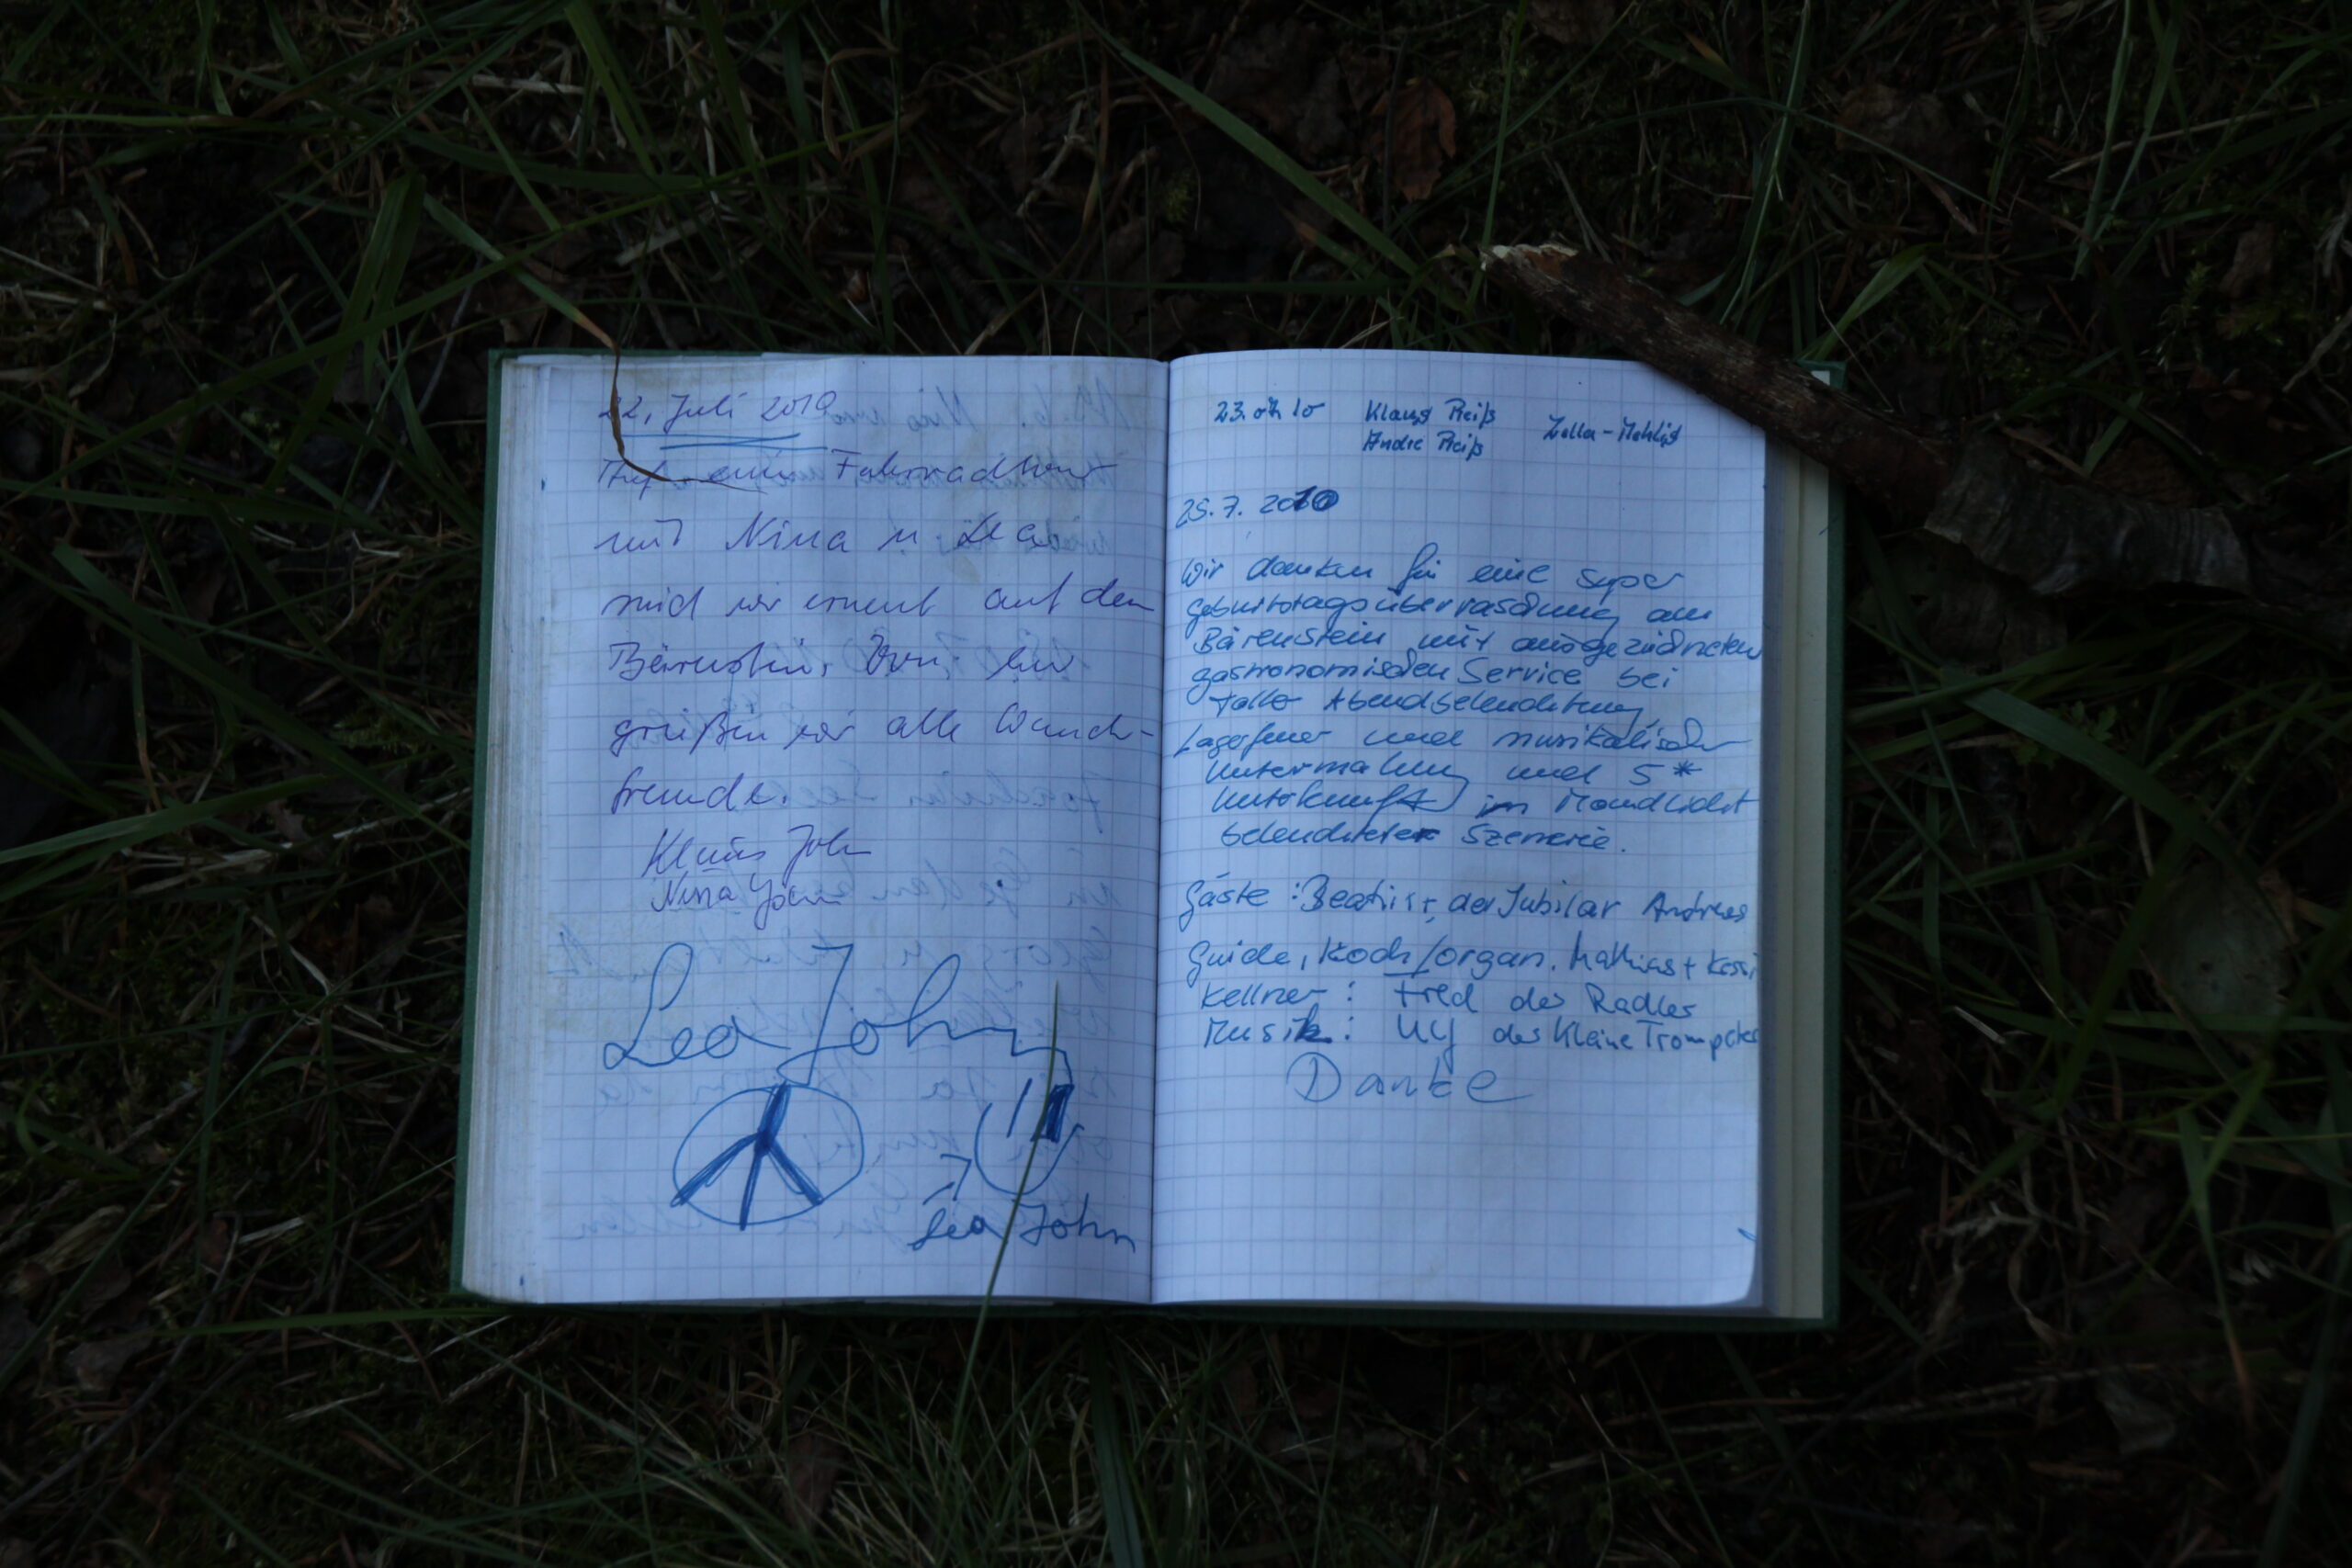 22. Juli 2010
Auf einer Fahrradtour
mit Nina u Lea
sind wir erneut auf dem
Bärenstein. Von hier
grüßen wir alle Wander-
freunde.
Klaus John
Nina John
Lea John
Lea John
23.07.10 Klaus Reiß Zella-Mehlis
Andre Reiß
25.7.2010
Wir danken für eine super
Geburtstagsüberraschung am
Bärenstein mit ausgezeichneten
gastronomischen Service bei
toller Abendbeleuchtung,
Lagerfeuer und musikalischer
Untermalung und 5*
Unterkunft im Mondlicht
beleuchteter Szenerie.
Gäste: der Jubilar Andreas
Guide, Koch/organ. Mathias +
Kellner: Fred der Radler
Musik: der kleine Trompeter
Danke